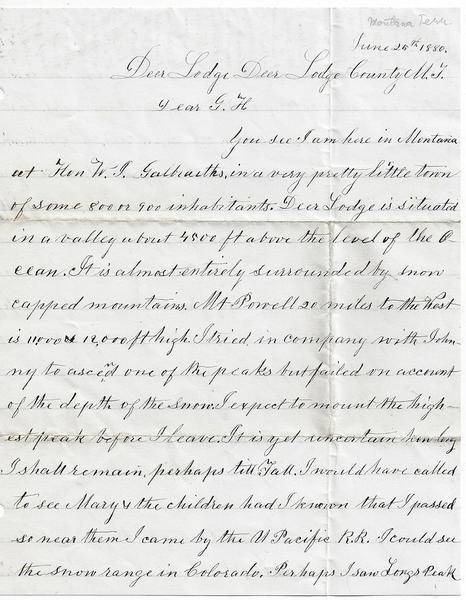 Montana Terr
June 25th 1880.
Deer Lodge Deer Lodge County M.T.
Dear G. H
You see I am here in Montana
at Hon W. J. Galbraiths, in a very pretty little town
of some 800 or 900 inhabitants. Deer Lodge is situated
in a valley about 4500 ft above the level of the O-
cean. It is almost entirely surrounded by snow
capped mountains. Mt Powell 20 miles to the West
is 11000 or 12,000 ft high. I tried, in company with John-
ny to ascend one of the peaks but failed on account
of the depth of the snow. I expect to mount the high-
est peak before I leave. It is yet uncertain how long
I shall remain, perhaps till Fall. I would have called
to see Mary & the children had I known that I passed
so near them I came by the U Pacific R.R. I could see
the snow range in Colorado. Perhaps I saw Longs Peak